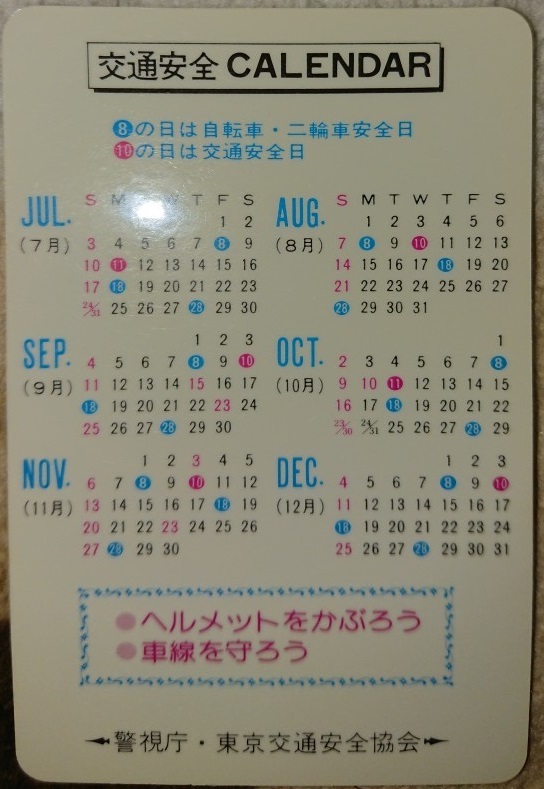 交通安全 CALENDAR
8の日は自転車・二輪車安全日
10の日は交通安全日
JUL.
(7月)
S M T W T F S
1 2
3 4 5 6 7 8 9
10 11 12 13 14 15 16
17 18 19 20 21 22 23
24/31 25 26 27 28 29 30
AUG.
(8月)
S M T W T F S
1 2 3 4 5 6
7 8 9 10 11 12 13
14 15 16 17 18 19 20
21 22 23 24 25 26 27
28 29 30 31
SEP.
(9月)
1 2 3
4 5 6 7 8 9 10
11 12 13 14 15 16 17
18 19 20 21 22 23 24
25 26 27 28 29 30
OCT.
(10月)
1
2 3 4 5 6 7 8
9 10 11 12 13 14 15
16 17 18 19 20 21 22
23/30 24/31 25 26 27 28 29
NOV.
(11月)
1 2 3 4 5
6 7 8 9 10 11 12
13 14 15 16 17 18 19
20 21 22 23 24 25 26
27 28 29 30
DEC.
(12月)
1 2 3
4 5 6 7 8 9 10
11 12 13 14 15 16 17
18 19 20 21 22 23 24
25 26 27 28 29 30 31
●ヘルメットをかぶろう
●車線を守ろう
警視庁・東京交通安全協会